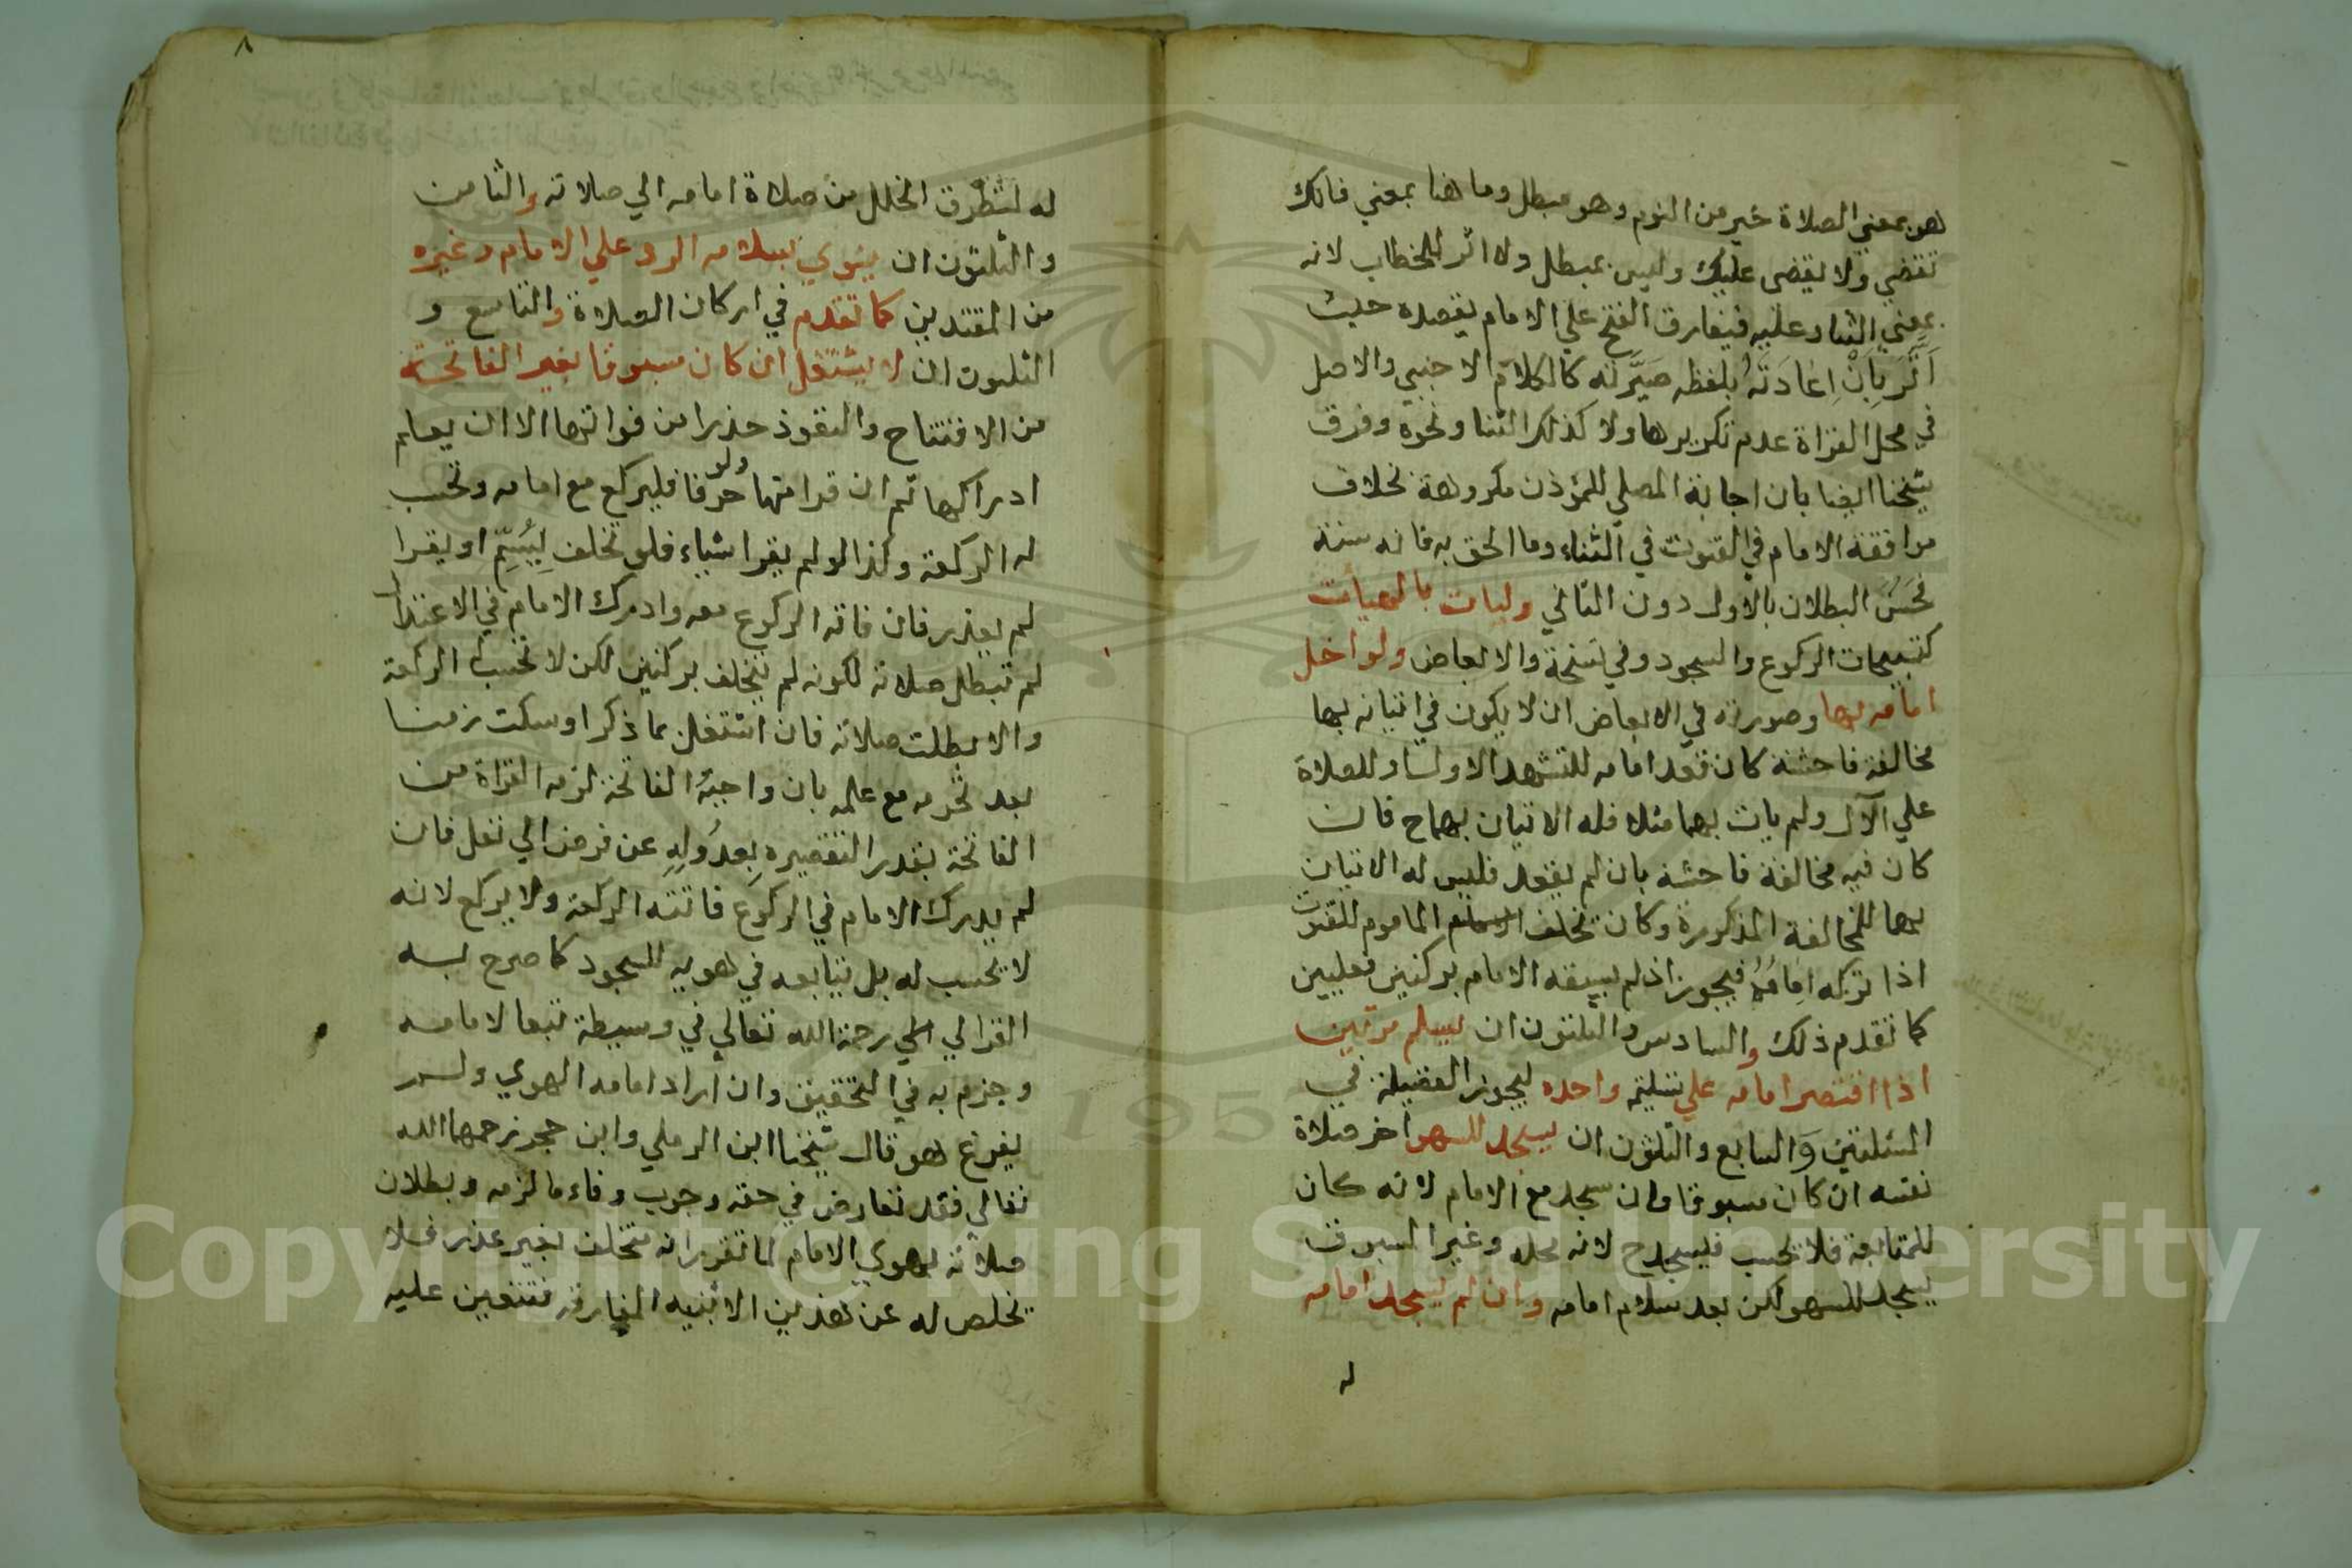 هو بمعني الصلاة خير من النوم وهو مبطل وما هنا بمعني فانك
تقضي ولا يقضى عليك وليس بمبطل ولا اثر للخطاب لانه
بمعني الثناء وعليه فيفارق الفتح علي الامام يقصده حيث
اَثَّرَ بِاَنَّ اِعَادَتَهُ بلفظه صَيَّرَتْه كالكلام الاجنبي والاصل
في محل القراة عدم تكريرها ولا كذلك الثنا ونحوه وفرق
شيخنا ايضا بان اجابة المصلي للمؤذن مكروهة بخلاف
موافقة الامام في القنوت في الثناء وما الحق به فانه سنة
فحَسُنَ البطلان بالاول دون الثاني وليات بالهيأت
كتسبيحات الركوع والسجود وفي نسخة والابعاض ولو اخل
امامه بها وصورته في الابعاض ان لا يكون في اتيانه بها
مخالفة فاحشة كان قعد امامه للتشهد الاول او للصلاة
علي الآل ولم يات بهما مثلا فله الاتيان بهما ح فان
كان فيه مخالفة فاحشة بان لم يقعد فليس له الاتيان
بهما للمخالفة المذكورة وكان تخلف الماموم للقنوت
اذا تركه اِمَامُهُ فيجوز اذ لم يسبقه الامام بركنين فعليين
كما تقدم ذلك والسادس والثلثون ان يسلم مرتين
اذا اقتصر امامه علي تسليمة واحده ليحوز الفضيلة في
المسئلتين وَالسابع والثلثون ان يسجد للسهو اخر صلاة
نفسه ان كان مسبوقا وان سجد مع الامام لانه كان
للمتابعة فلا تحسب فليسجد ح لانه محله وغير المسبوق
يسجد للسهو لكن بعد سلام امامه وان لم يسجد امامه
له
٨
له لتطرق الخلل من صلاة امامه الي صلاته والثامن
والثلثون ان ينوي بسلامه الرد علي الامام وغيره
من المقتدين كما تقدم في اركان الصلاة والتاسع و
الثلثون ان لا يشتغل ان كان مسبوقا بغير الفاتحة
من الافتتاح والتعوذ حذرا من فواتها الا ان يعلم
ادراكها ثم ان قرا منها ولو حرفا فليركع مع امامه وتحسب
له الركعة وكذا لو لم يقرا شياء فلو تخلف لِيُتِمّ او يقرا
لم يعذر فان فاته الركوع معه وادرك الامام في الاعتدال
لم تبطل صلاته لكونه لم يتخلف بركنين لكن لا تحسب الركعة
والا بطلت صلاته فان اشتغل بما ذكر او سكت زمنا
بعد تحرمه مع علمه بان واجبَهُ الفاتحة لزمه القراة من
الفاتحة بقدر التقصيره بِعدُولِهِ عن فرض الي نفل فان
لم يدرك الامام في الركوع فاتته الركعة ولا يركع لانه
لا يحسب له بل يتابعه في هويه للسجود كما صرح به
الغزالي رحمة الله تعالي في وسيطة تبعا لامامه
وجزم به في التحقيق وان اراد امامه الهوي ولم
يفرغ هو قال شيخنا ابن الرملي وابن حجر رحمهما الله
تعالي فقد تعارض في حقه وجوب وفاء ما لزمه وبطلان
صلاته بهوي الامام لما تقرر انه متخلف بغير عذر فلا
يخلص له عن هذين الا بنية المفارقة فتتعين عليه
Copyright © King Saud University
1957